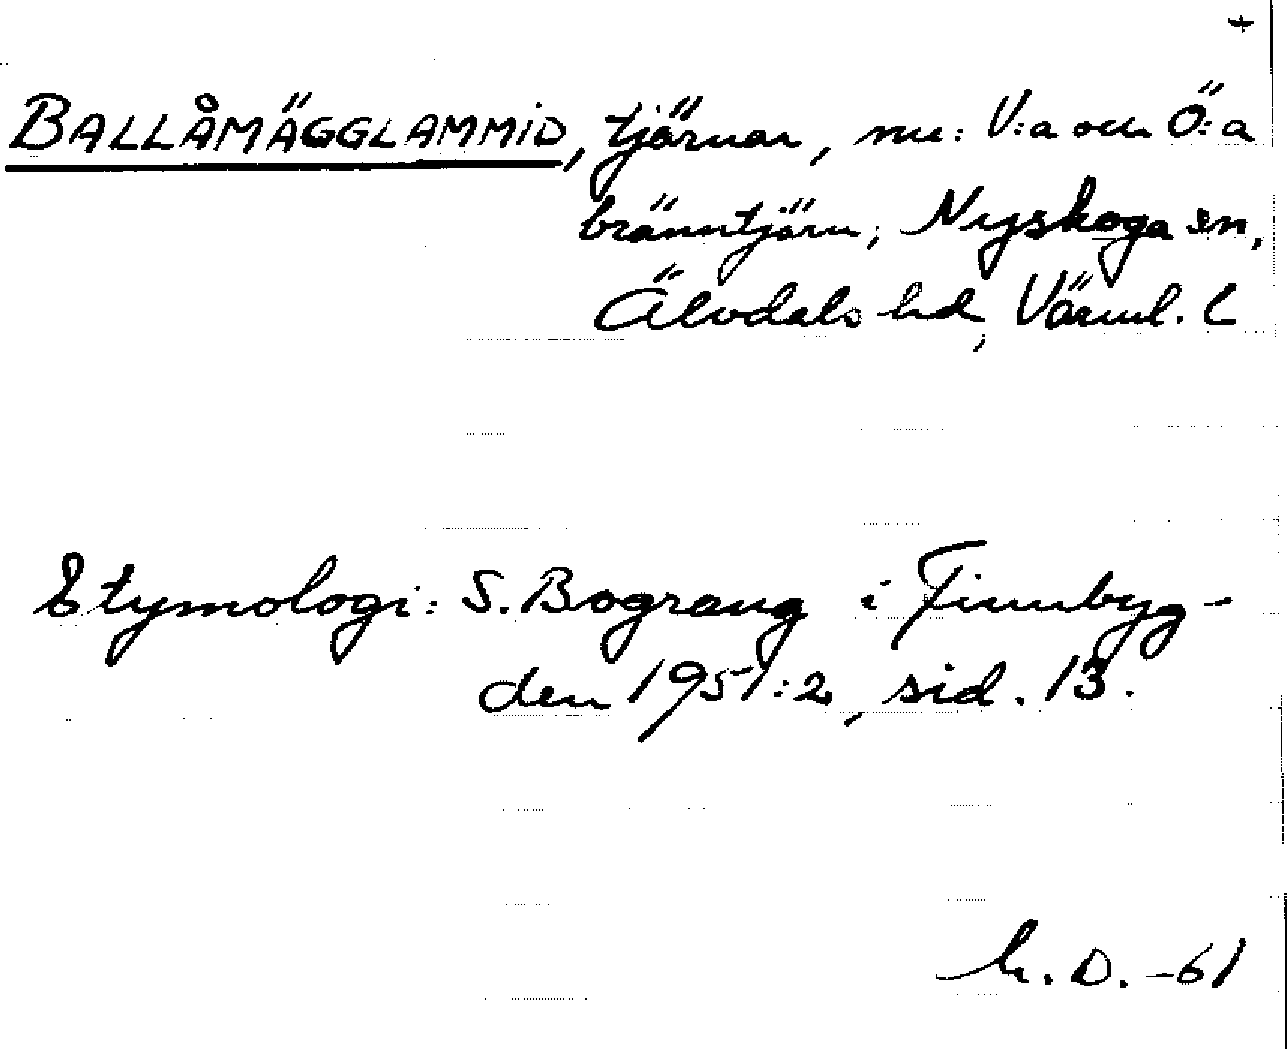 +
BALLÅMÄGGLAMMID, tjärnar, nu: V:a och Ö:a
bränntjärn, Nyskoga sn,
Älvdals hd, Värml. l
Etymologi: S. Bograng i Finnbyg-
den 1951:2, sid. 13.
h. D. -61